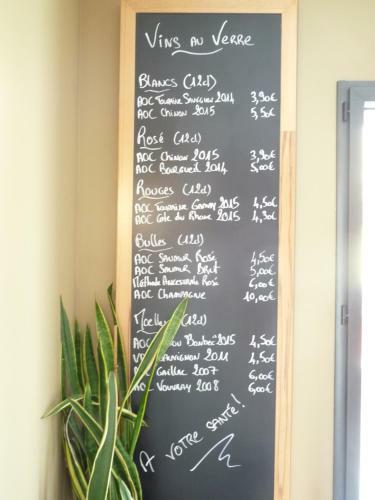 Vins au Verre
Blancs (12cl)
AOC Touraine Sauvignon 2014 3,90€
AOC Chinon 2015 5,50€
Rosé (12cl)
AOC Chinon 2015 3,90€
AOC Bourgueil 2014 5,00€
Rouges (12cl)
AOC Touraine Gamay 2015 4,50€
AOC Côte du Rhône 2015 4,30€
Bulles (12cl)
AOC Saumur Rosé 4,50€
AOC Saumur Brut 5,00€
Méthode Ancestrale Rosé 6,00€
AOC Champagne 10,00€
Moelleux (12cl)
AOC 2015 4,50€
Sauvignon 2011 4,50€
Gaillac 2007 6,00€
AOC Vouvray 2008 6,00€
A votre santé!